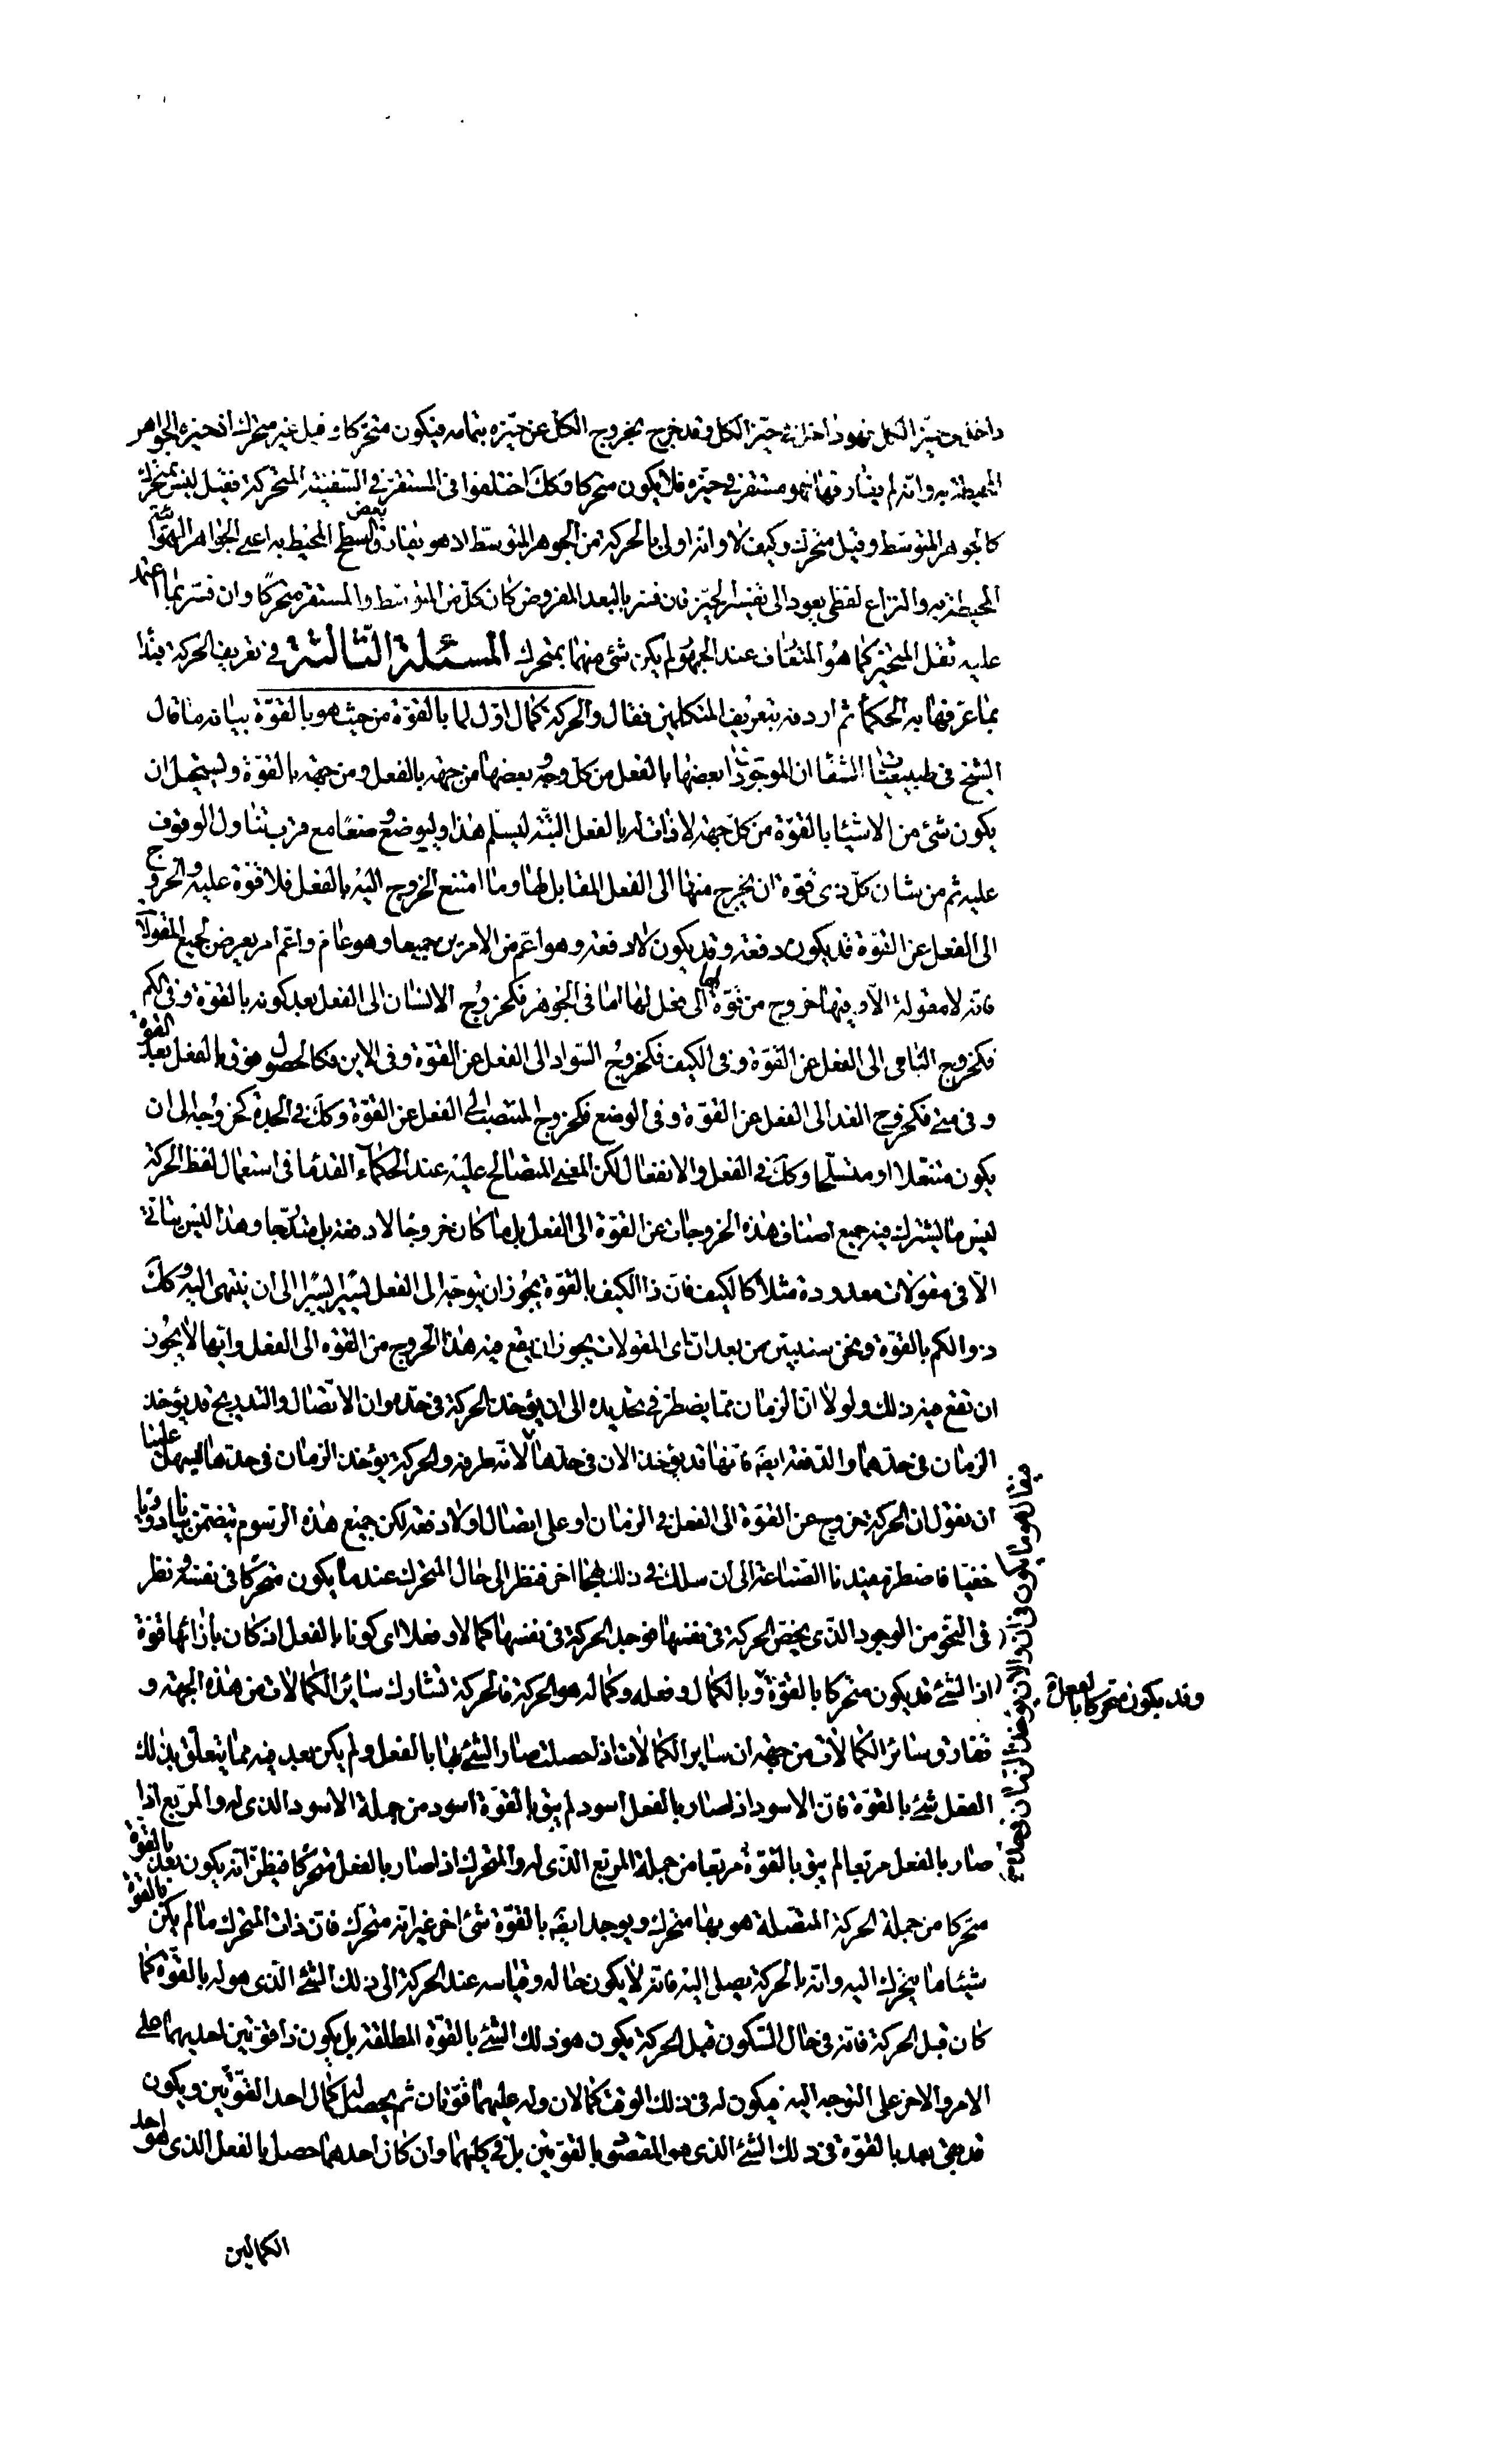 داخل في حيّز الكل فهو داخل في حيّز الكل وقد خرج بخروج الكل عن حيّزه بتمامه فيكون متحركا وقيل غير متحرك اذ حيزه الجواهر
المحيطة به وانه لم يفارقها فهو مستقر في حيّزه فلا يكون متحركا وكك اختلفوا في المستقر في السفينة المتحركة فقيل ليس بمتحرك
كالجوهر المتوسط وقيل متحرك وكيف لا وانه اولى بالحركة من الجوهر المتوسط اذ هو يفارق بعض السطح المحيط به اعني الجواهر الهوائية
المحيطة به والنزاع لفظي يعود الى تفسير الحيّز فان فسر بالبعد المفروض كان كل من المتوسط والمستقر متحركا وان فسر بما اعتمد
عليه ثقل المتحيز كما هو المتعارف عند الجمهور لم يكن شئ منهما بمتحرك المسئلة الثالثة في تعريف الحركة فبدأ
بما عرفها به الحكماء ثم اردفه بتعريف المتكلمين فقال والحركة كمال اول لما بالقوة من حيث هو بالقوة بيانه ما قال
الشيخ في طبيعيات الشفا ان الموجودات بعضها بالفعل من كل وجه وبعضها من جهة بالفعل ومن جهة بالقوة ويستحيل ان
يكون شئ من الاشيا بالقوة من كل جهة لا ذات له بالفعل البتة ليسلم هذا وليوضع وضعا مع قرب تناول الوقوف
عليه ثم من شان كل ذي قوة ان يخرج منها الى الفعل المقابل لها وما امتنع الخروج اليه بالفعل فلا قوة عليه والخروج
الى الفعل عن القوة قد يكون دفعة وقد يكون لا دفعة وهو اعم من الامرين جميعا وهو عام واعم امر يعرض لجميع المقولات
فانه لا مقولة الا وفيها خروج من قوة لها الى فعل لها اما في الجوهر فكخروج الانسان الى الفعل بعد كونه بالقوة وفي الكم
فكخروج النامي الى الفعل عن القوة وفي الكيف فكخروج السواد الى الفعل عن القوة وفي الاين فكالحصول فوق بالفعل بعد القوة
وفي متى فكخروج الغد الى الفعل عن القوة وفي الوضع فكخروج المنتصب الى الفعل عن القوة وكك في الجدة كخروجه الى ان
يكون متنعلا او متسلحا وكك في الفعل والانفعال لكن المعنى المتصالح عليه عند الحكماء القدما في استعمال لفظ الحركة
ليس ما يشترك فيه جميع اصناف هذه الخروجات عن القوة الى الفعل بل ما كان خروجا لا دفعة بل متدرجا وهذا ليس يتاتى
الا في مقولات معدودة مثلا كالكيف فان ذا الكيف بالقوة يجوز ان يتوجه الى الفعل يسيرا يسيرا الى ان ينتهى اليه وكك
ذو الكم بالقوة ونحن سنبين من بعد ان اى المقولات يجوز ان يقع فيه هذا الخروج من القوه الى الفعل وايها لا يجوز
ان تقع فيه ذلك ولولا ان الزمان مما يضطر في تحديده الى ان يؤخذ الحركة في حده وان الاتصال والتدريج قد يؤخذ
الزمان في حدهما والدفعة ايضا فانها قد يؤخذ الان في حدها
لانه طرفه والحركة يؤخذ الزمان في حدها ليسهل علينا
ان نقول ان الحركة خروج عن القوة الى الفعل في الزمان او على اتصال او لا دفعة لكن جميع هذه الرسوم يتضمن بيانا دوريا
خفيا فاضطر مفيدنا الصناعة الى ان سلك في ذلك نهجا اخر فنظر الى حال المتحرك عندما يكون متحركا في نفسه ونظر
في النحو من الوجود الذي يخص الحركة في نفسها فوجد الحركة في نفسها كمالا وفعلا اى كونا بالفعل اذ كان بازائها قوة
اذ الشئ قد يكون متحركا بالقوة وبالكمال وفعله وكماله هو الحركة فالحركة تشارك سائر الكمالات من هذه الجهة و
تفارق سائر الكمالات من جهة ان ساير الكمالات اذ احصلت صار الشئ بها بالفعل ولم يكن بعد فيه مما يتعلق بذلك
الفعل شئ بالقوة فان الاسود اذ اصار بالفعل اسود لم يبق بالقوة اسود من جملة الاسود الذي له والمربع اذا
صار بالفعل مربعا لم يبق بالقوة مربعا من جملة المربع الذي له والمتحرك اذ اصار بالفعل متحركا فيظن انه يكون بعد بالقوة
متحركا من جملة الحركة المتصلة هو بها متحرك ويوجد ايضا بالقوة شئ اخر غير انه متحرك فان ذات المتحرك ما لم يكن بالقوة
شيئا ما يتحرك اليه وانه بالحركة يصل اليه فانه لا يكون حاله وقياسه عند الحركة الى ذلك الشئ الذي هو له بالقوة كما
كان قبل الحركة فانه في حال السكون قبل الحركة يكون هو ذلك الشئ بالقوة المطلقة بل يكون ذا قوتين احديهما على
الامر والاخر على التوجه اليه فيكون له في ذلك الوقت كمالان وله عليهما قوتان ثم يحصل له كمال احد القوتين ويكون
قد بقي بعد بالقوة في ذلك الشئ الذي هو المقصود بالقوتين بل في كليهما وان كان احدهما حصل بالفعل الذي هو احد
الكمالين
وقد يكون متحركا بالفعل